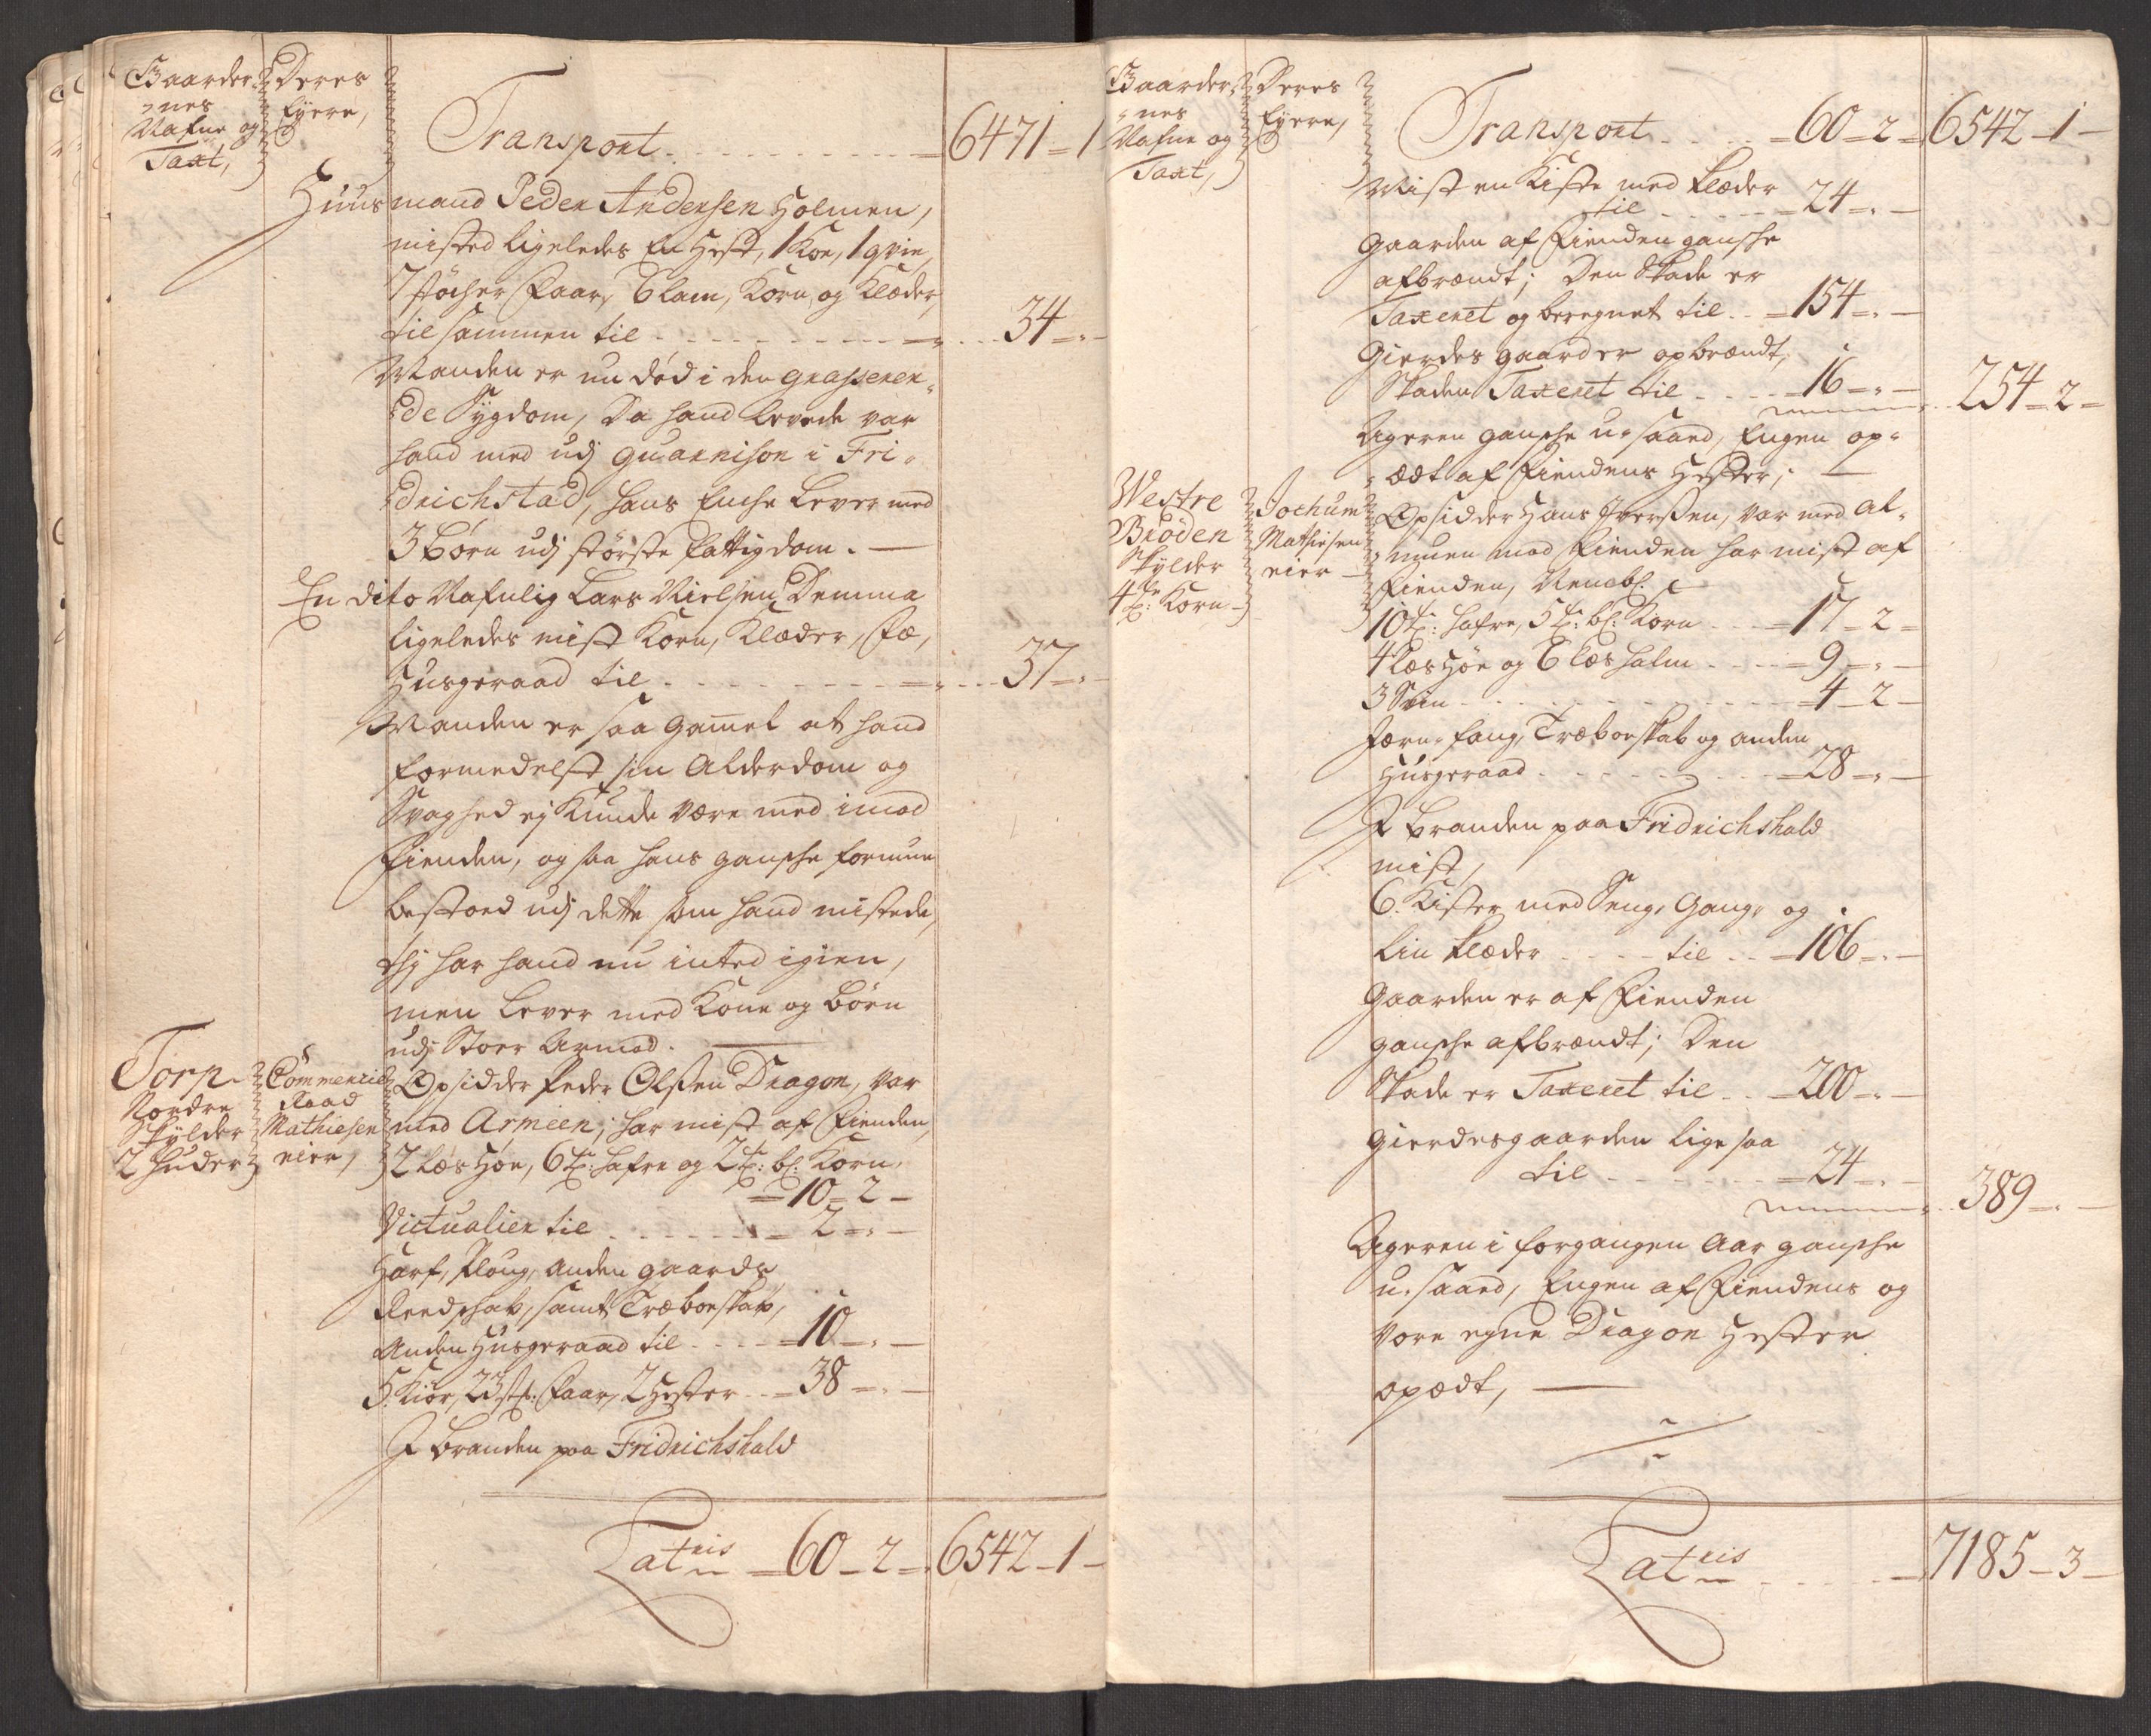 Gaarder-
nes
Nafne og
Taxt,
Deres
Eyere,
Transport - - - 6471 - 1
Huusmand Peder Andersen Holmen,
misted ligeledes En Hest, 1 Koe, 1 qvie,
7 støcher Faar, 6 lam, Korn, og Klæder,
tilsammen til - - - 34 - -
Manden er nu død i den grasseren-
de Sygdom, Da hand levede var
hand med udj guarnison i Fri-
drichstad, hans Enche lever med
3 børn udj største fattigdom. —
En dito Nafnlig Lars Nielsen Demma
ligeledes mist Korn, Klæder, Fæ,
Husgeraad til - - - 37 - -
Manden er saa gamel at hand
formedelst sin Alderdom og
Svaghed ej Kunde være med imod
Fienden, og saa hans gansche formue
bestoed udj dette som hand mistede,
thj har hand nu inted igien,
men lever med Kone og børn
udj Stoer Armod. —
Torp
Nordre
Skylder
2 huder
Commercie
Raad
Mathiesen
eier,
Opsidder Peder Olssen Dragon, var
med Armeen, har mist af Fienden,
2 læs Høe, 6 tr: hafre og 2 tr: bl: Korn,
10 - 2 -
Victualier til - - - 2 - -
Harf, Ploug, anden gaards
Reedschab, samt Træboeskab,
Anden Husgeraad til - - - 10 - -
5 Kiør, 23 st: Faar, 2 Hester - - 38 - -
I branden paa Fridrichshald
Lateris - 60 - 2 - 6542 - 1 -
Gaarder-
nes
Nafne og
Taxt,
Deres
Eyere,
Transport - - - 60 - 2 - 6542 - 1 -
Mist en Kiste med Klæder
til - - - 24 - -
Gaarden af Fienden gansche
afbrændt; Den Skade er
Taxeret og beregnet til - - 154 - -
Gierdes gaarder opbrændt,
Skaden Taxeret til - - - 16 - -
254 - 2 -
Ageren gansche u-saaed, Engen op-
ædt af Fiendens Hester; —
Westre
Brøden
Skylder
4 tr: Korn
Jochum
Mathiesen
eier
Opsidder Hans Iverssen, var med al-
muen mod Fienden har mist af
Fienden, Neml:
10 tr: hafre, 5 tr: bl: Korn - - 17 - 2 -
4 læs Høe og 6 læs halm - - - 9 - -
3 Svin - - - 4 - 2 -
Jærn-fang, Træboeskab og anden
Husgeraad - - - 28 - -
I branden paa Fridrichshald
mist,
6 Kister med Seng, Gang, og
Lin Klæder - - til - - 106 - -
Gaarden er af Fienden
gansche afbrændt; Den
Skade er Taxeret til - - 200 - -
Gierdesgaarden lige saa
til - - - 24 - -
389 - -
Ageren i forgangen Aar gansche
u-saaed, Engen af Fiendens og
vore egne Dragon Hester
opædt, —
Lateris - - - 7185 - 3 -